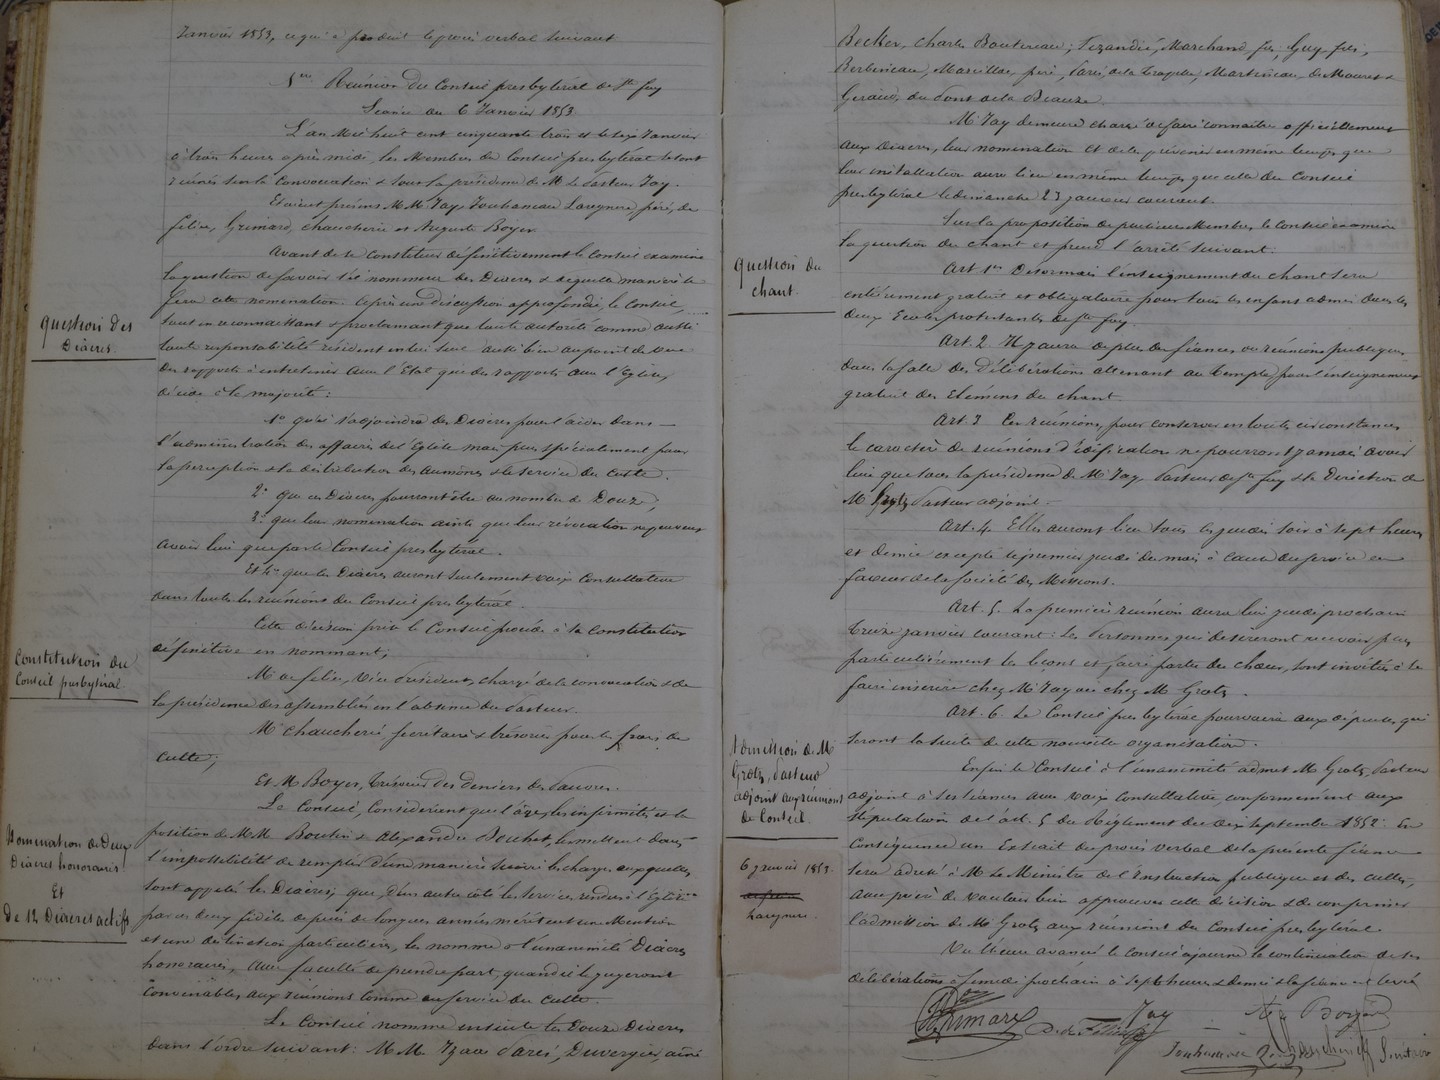 Janvier 1853, ce qui a produit le procès verbal suivant
Réunion du Conseil presbytéral de Ste foy
Séance du 6 Janvier 1853
L'an Mil huit cent cinquante trois et le six Janvier
à trois heures après midi, les Membres du Conseil presbytéral se sont
réunis sur la Convocation & sous la présidence de M. le Pasteur Jay.
Etaient présens MM. Jay, Jouhaneau Lavignere, père, de
félice, Grimard, chaucherie et Auguste Boyer.
Avant de se Constituer définitivement le Conseil examine
la question de savoir s'il nommera des Diacres & de quelle manière se
fera cette nomination. Après une discussion approfondie, le Conseil,
Question des
Diacres.
tout en reconnaissant & proclamant que toute autorité comme aussi
toute responsabilité résident en lui seul aussi bien au point de vue
des rapports à entretenir avec l'Etat que des rapports avec l'Eglise,
décide à la majorité :
1º qu'il s'adjoindra des Diacres pour l'aider dans
l'administration des affaires de l'Eglise mais plus spécialement pour
la perception & la distribution des aumônes & le service du culte.
2º que ces Diacres pourront être au nombre de Douze,
3º que leur nomination ainsi que leur révocation ne peuvent
avoir lieu que par le Conseil presbytéral.
Et 4º que les Diacres auront seulement voix Consultative
dans toutes les réunions du Conseil presbytéral.
Cette décision prise le Conseil procède à sa constitution
définitive en nommant;
Constitution du
Conseil presbytéral
M. de félice, Vice Président, chargé de la convocation & de
la présidence des assemblées en l'absence du Pasteur.
M. Chaucherie, secrétaire & trésorier pour les frais du
culte;
Et M. Boyer, Trésorier des deniers des Pauvres.
Le Conseil, Considérant que l'âge, les infirmités et la
Nomination de Deux
Diacres honoraires
Et
de 12 Diacres actifs
position de MM. Boutin & Alexandre Bouchet, les mettent dans
l'impossibilité de remplir d'une manière suivie les charges auxquelles
sont appelés les Diacres; que, d'un autre côté les services rendus à l'Eglise
par ces deux fidèles depuis de longues années méritent une Mention
et une distinction particulières, les nomme à l'unanimité Diacres
honoraires, avec faculté de prendre part, quand ils le jugeront
convenables aux réunions comme au service du culte.
Le Conseil nomme ensuite les Douze Diacres
dans l'ordre suivant : MM. Isaac Pariès, Duvergier, aîné
Becker, Charles Boutereau, Marchand fils, Guy, fils,
Marcillac, père, de la Trappelle, Martineau, de Mauret &
Giraud, du Pont de la Beauze.
M. Jay demeure chargé de faire connaître officiellement
aux Diacres, leur nomination et de les prévenir en même temps que
leur installation aura lieu en même temps que celle du Conseil
presbytéral le dimanche 23 janvier courant.
Sur la proposition de plusieurs Membres, le Conseil examine
la question du chant et prend l'arrêté suivant.
Question du
chant.
Art. 1er Désormais l'enseignement du chant sera
entièrement gratuit et obligatoire pour tous les enfans admis dans les
deux Ecoles protestantes de Ste foy.
Art. 2 Il y aura de plus des séances ou réunions publiques
dans la salle des délibérations attenant au Temple, pour l'enseignement
gratuit des Elémens du chant.
Art. 3 Ces réunions, pour conserver en toutes circonstances
le caractère de réunions d'édification ne pourront jamais avoir
lieu que sous la présidence de M. Jay Pasteur de Ste foy & la Direction de
M. Grotz, Pasteur adjoint.
Art. 4. Elles auront lieu tous les jeudis soir à sept heures
et demie excepté le premier jeudi du mois à cause du service en
faveur de la société des Missions.
Art. 5. La première réunion aura lieu jeudi prochain
treize janvier courant : les Personnes qui désireront recevoir plus
particulièrement les leçons et faire partie du chœur, sont invitées à se
faire inscrire chez M. Jay ou chez M. Grotz.
Art. 6. Le Conseil presbytéral pourvoira aux dépenses qui
seront la suite de cette nouvelle organisation.
Admission de M.
Grotz, Pasteur
adjoint aux réunions
du Conseil.
Enfin le Conseil à l'unanimité admet M. Grotz, Pasteur
adjoint à ses séances avec voix consultative conformément aux
stipulations de l'art. 5 du Règlement du dix septembre 1852. En
Conséquence un Extrait du procès verbal de la présente séance
sera adressé à M. le Ministre de l'Instruction publique et des cultes,
avec prière de vouloir bien approuver cette décision & de confirmer
l'admission de M. Grotz aux réunions du Conseil presbytéral.
6 janvier 1853.
Lavignere
Vu l'heure avancée le Conseil ajourne la continuation de ses
délibérations à Samedi prochain à sept heures & demie & la séance est levée
Grimard
D. de Félice
Jay
Boyer
Jouhaneau
Chaucherie
Secrétaire